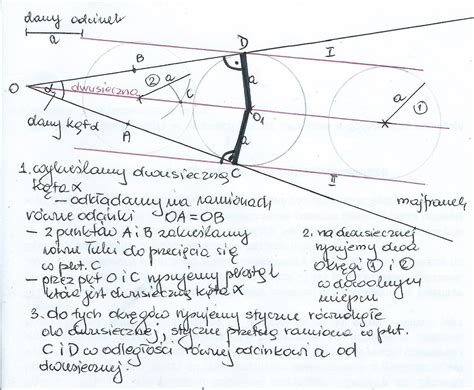 dany odcinek
a
D
I
B
a
②
a
dwusieczna
C
O
α
O1
a
①
dany kąt α
A
a
C
II
majfranek
1. wykreślamy dwusieczną
kąta α
– odkładamy na ramionach
równe odcinki OA=OB
– z punktów A i B zakreślamy
równe łuki do przecięcia się
w pkt. C
– przez pkt O i C rysujemy prostą
która jest dwusieczną kąta α
2. na dwusiecznej
rysujemy dwa
okręgi ① i ②
w dowolnym
miejscu
3. do tych okręgów rysujemy styczne równoległe
do dwusiecznej, styczne przetną ramiona w pkt.
C i D w odległości równej odcinkowi a od
dwusiecznej.